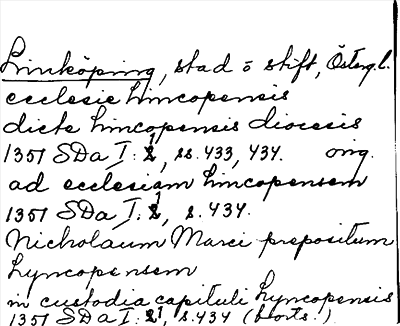 Linköping, stad o stift, Österg.l.
ecclesie lincopensis
dicte lincopensis diocesis
1351 SDa I: 1, ss. 433, 434. orig.
ad ecclesiam lincopensem
1351 SDa I: 1, s. 434.
Nicholaum Marci prepositum
lyncopensem
in custodia capituli lyncopensis
1351 SDa I: 1, s. 434 (forts.)